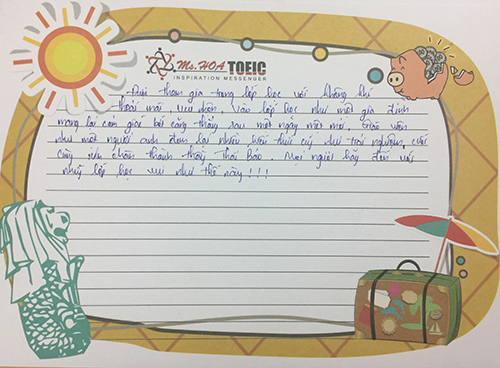 Ms. HOA TOEIC
INSPIRATION MESSENGER
Được tham gia trong lớp học với không khí
thoải mái, vui nhộn. Vào lớp học như một gia đình
mang lại cảm giác bớt căng thẳng sau một ngày mệt mỏi. Giáo viên
như một người anh đem lại nhiều kiến thức cũng như trải nghiệm cuộc
chân thành thầy Thái Bảo. Mọi người hãy đến với
những lớp học vui như thế này!!!